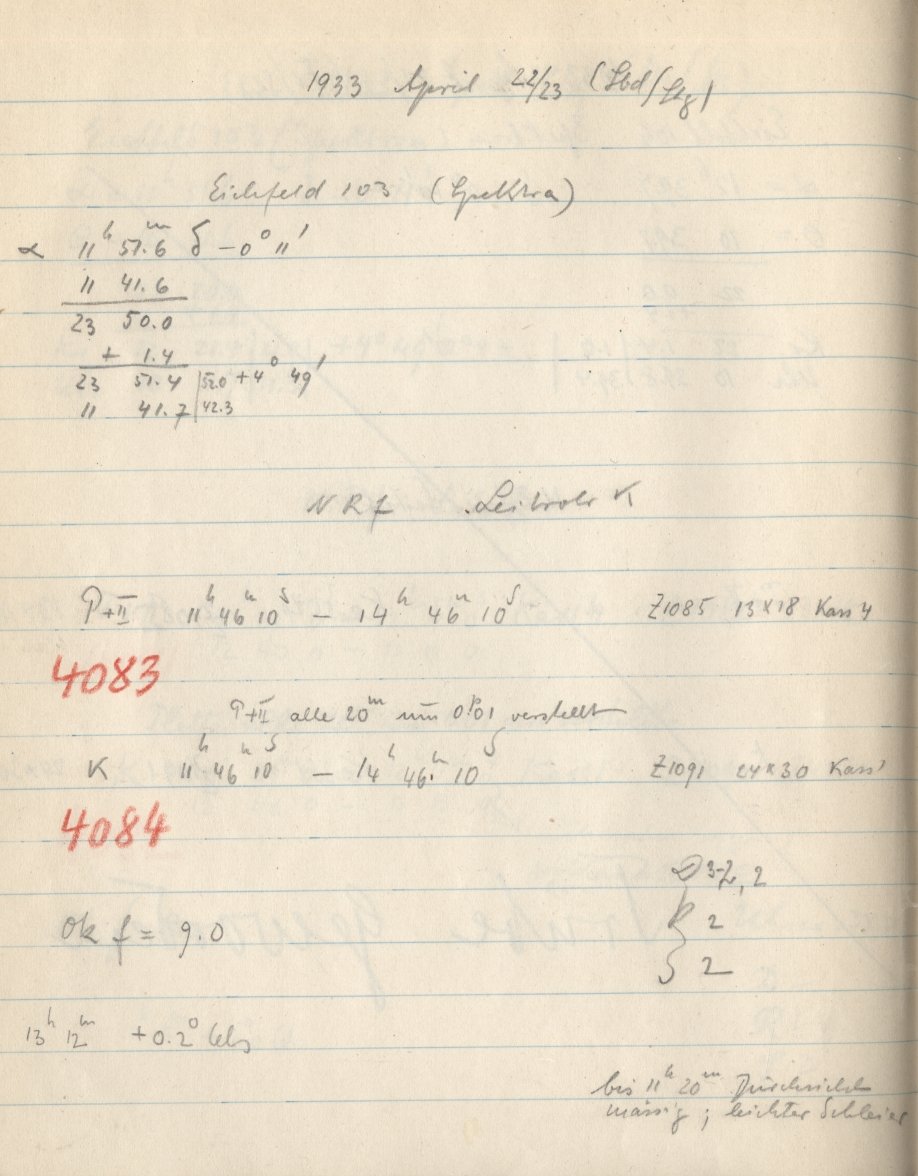 1933 April 22/23 (Sbd/Stg)
Eichfeld 103 (Spektra)
α 11ʰ 51.6ᵐ δ −0° 11′
11 41.6
23 50.0
+ 1.4
23 51.4 | 52.0 +4° 49′
11 41.7 | 42.3
NRf Leitrohr K
P+II 11ʰ 46ᵐ 10ˢ — 14ʰ 46ᵐ 10ˢ Z1085 13×18 Kass 4
4083
P+II alle 20ᵐ um 0.01 verstellt
K 11ʰ 46ᵐ 10ˢ — 14ʰ 46ᵐ 10ˢ Z1091 24×30 Kass 1
4084
D 3-2, 2
Ok f = 9.0 2
2
13ʰ 12ᵐ +0.2° Cels
bis 11ʰ 20ᵐ Durchsicht
mässig; leichter Schleier